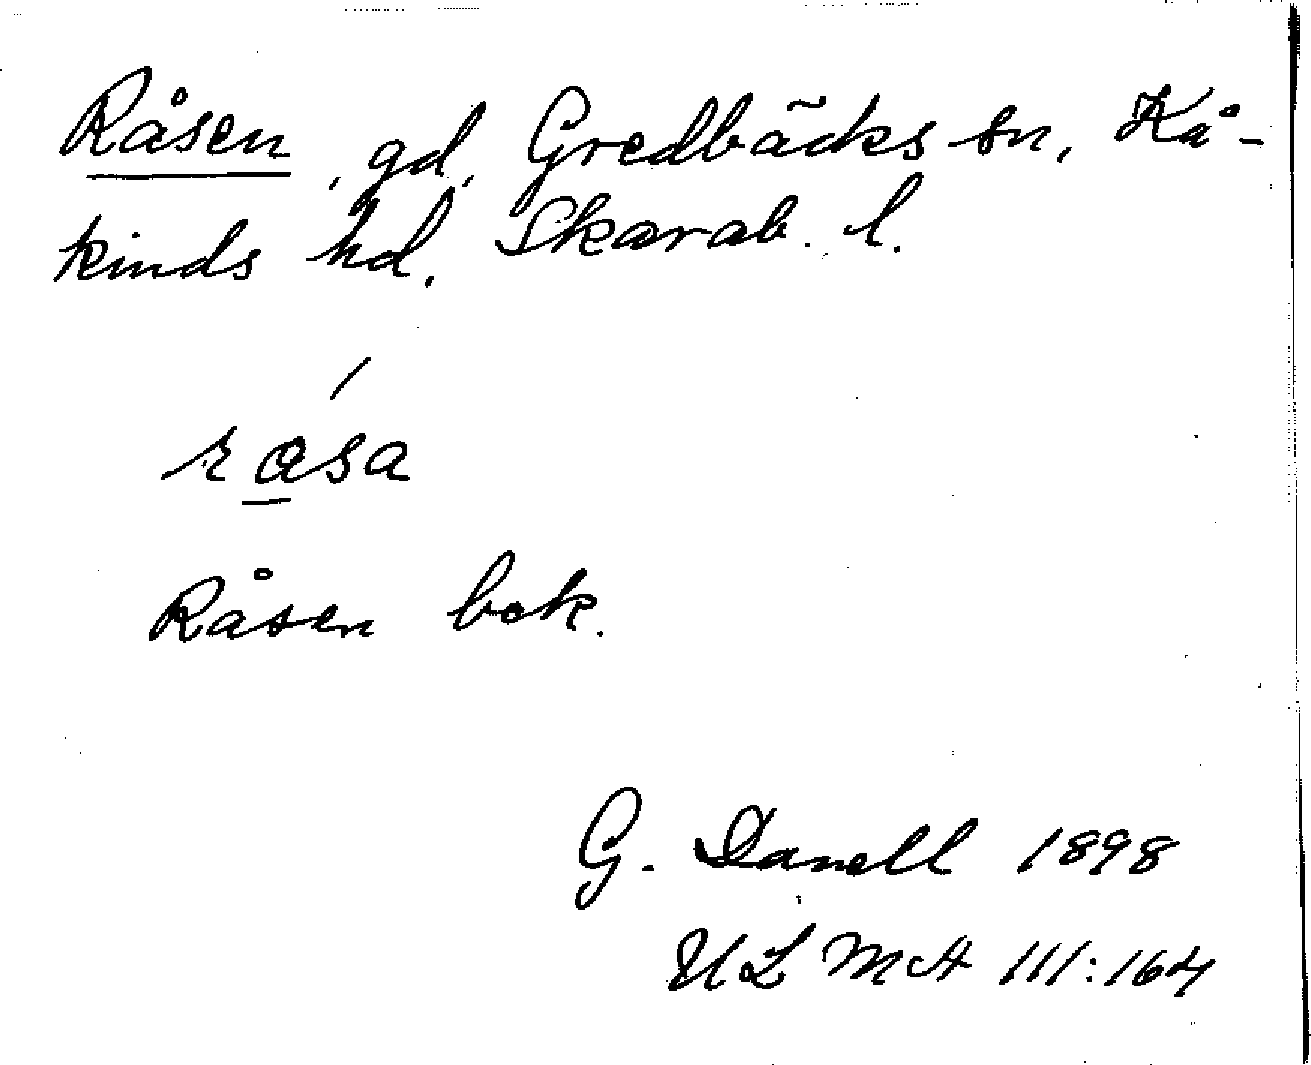 Råsen, gd, Gredbäcks sn, Kå-
kinds hd. Skarab. l.
råsa
Råsen bok.
G. Danell 1898
ULMA 111:164